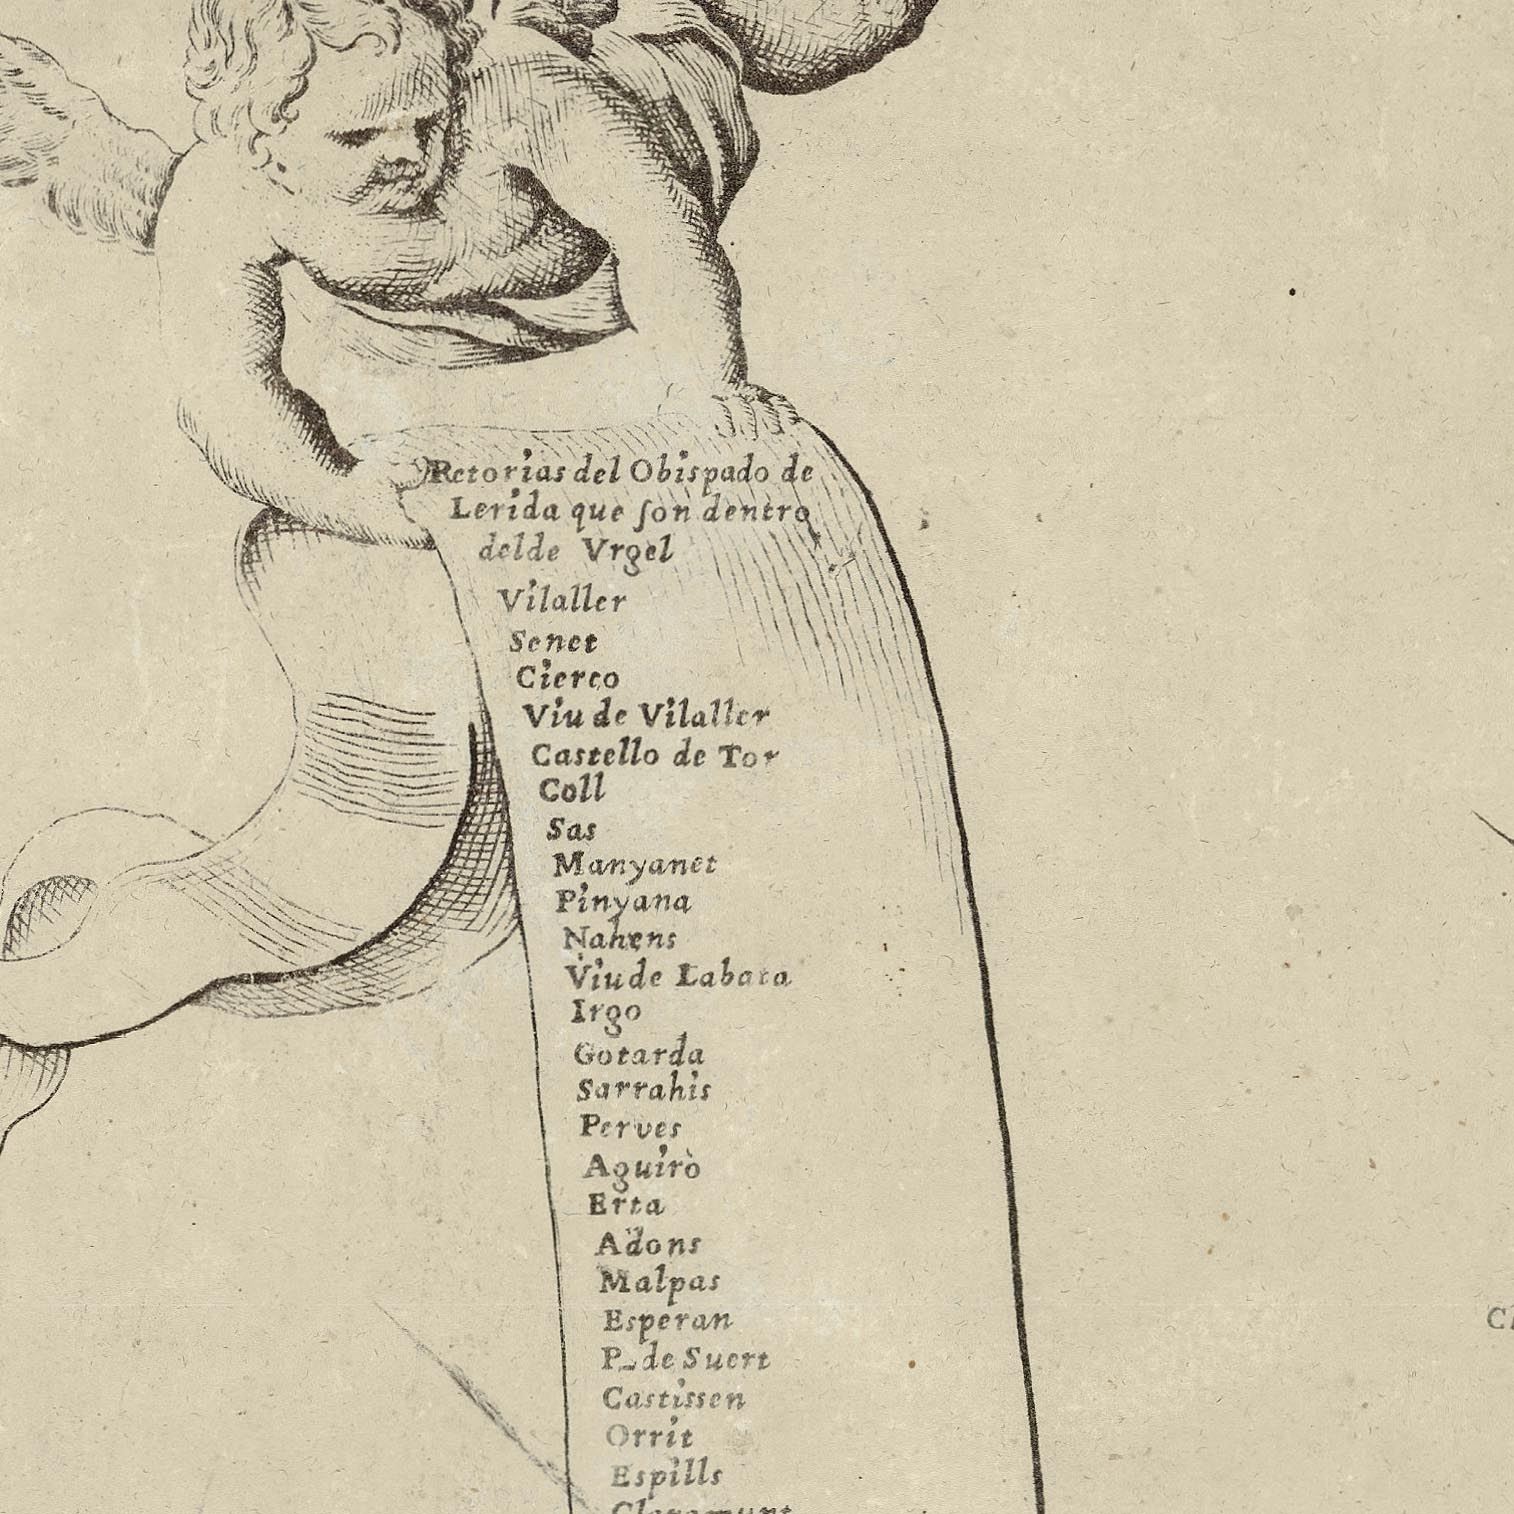 Retorias del Obispado de
Lerida que ſon dentro
delde Vrgel
Vilaller
Senet
Cierco
Viu de Vilaller
Castello de Tor
Coll
Sas
Manyanet
Pinyana
Nahens
Viude Labata
Irgo
Gotarda
Sarrahis
Perves
Aguirò
Erta
Adons
Malpas
Esperan
P_de Suert
Castissen
Orrit
Espills